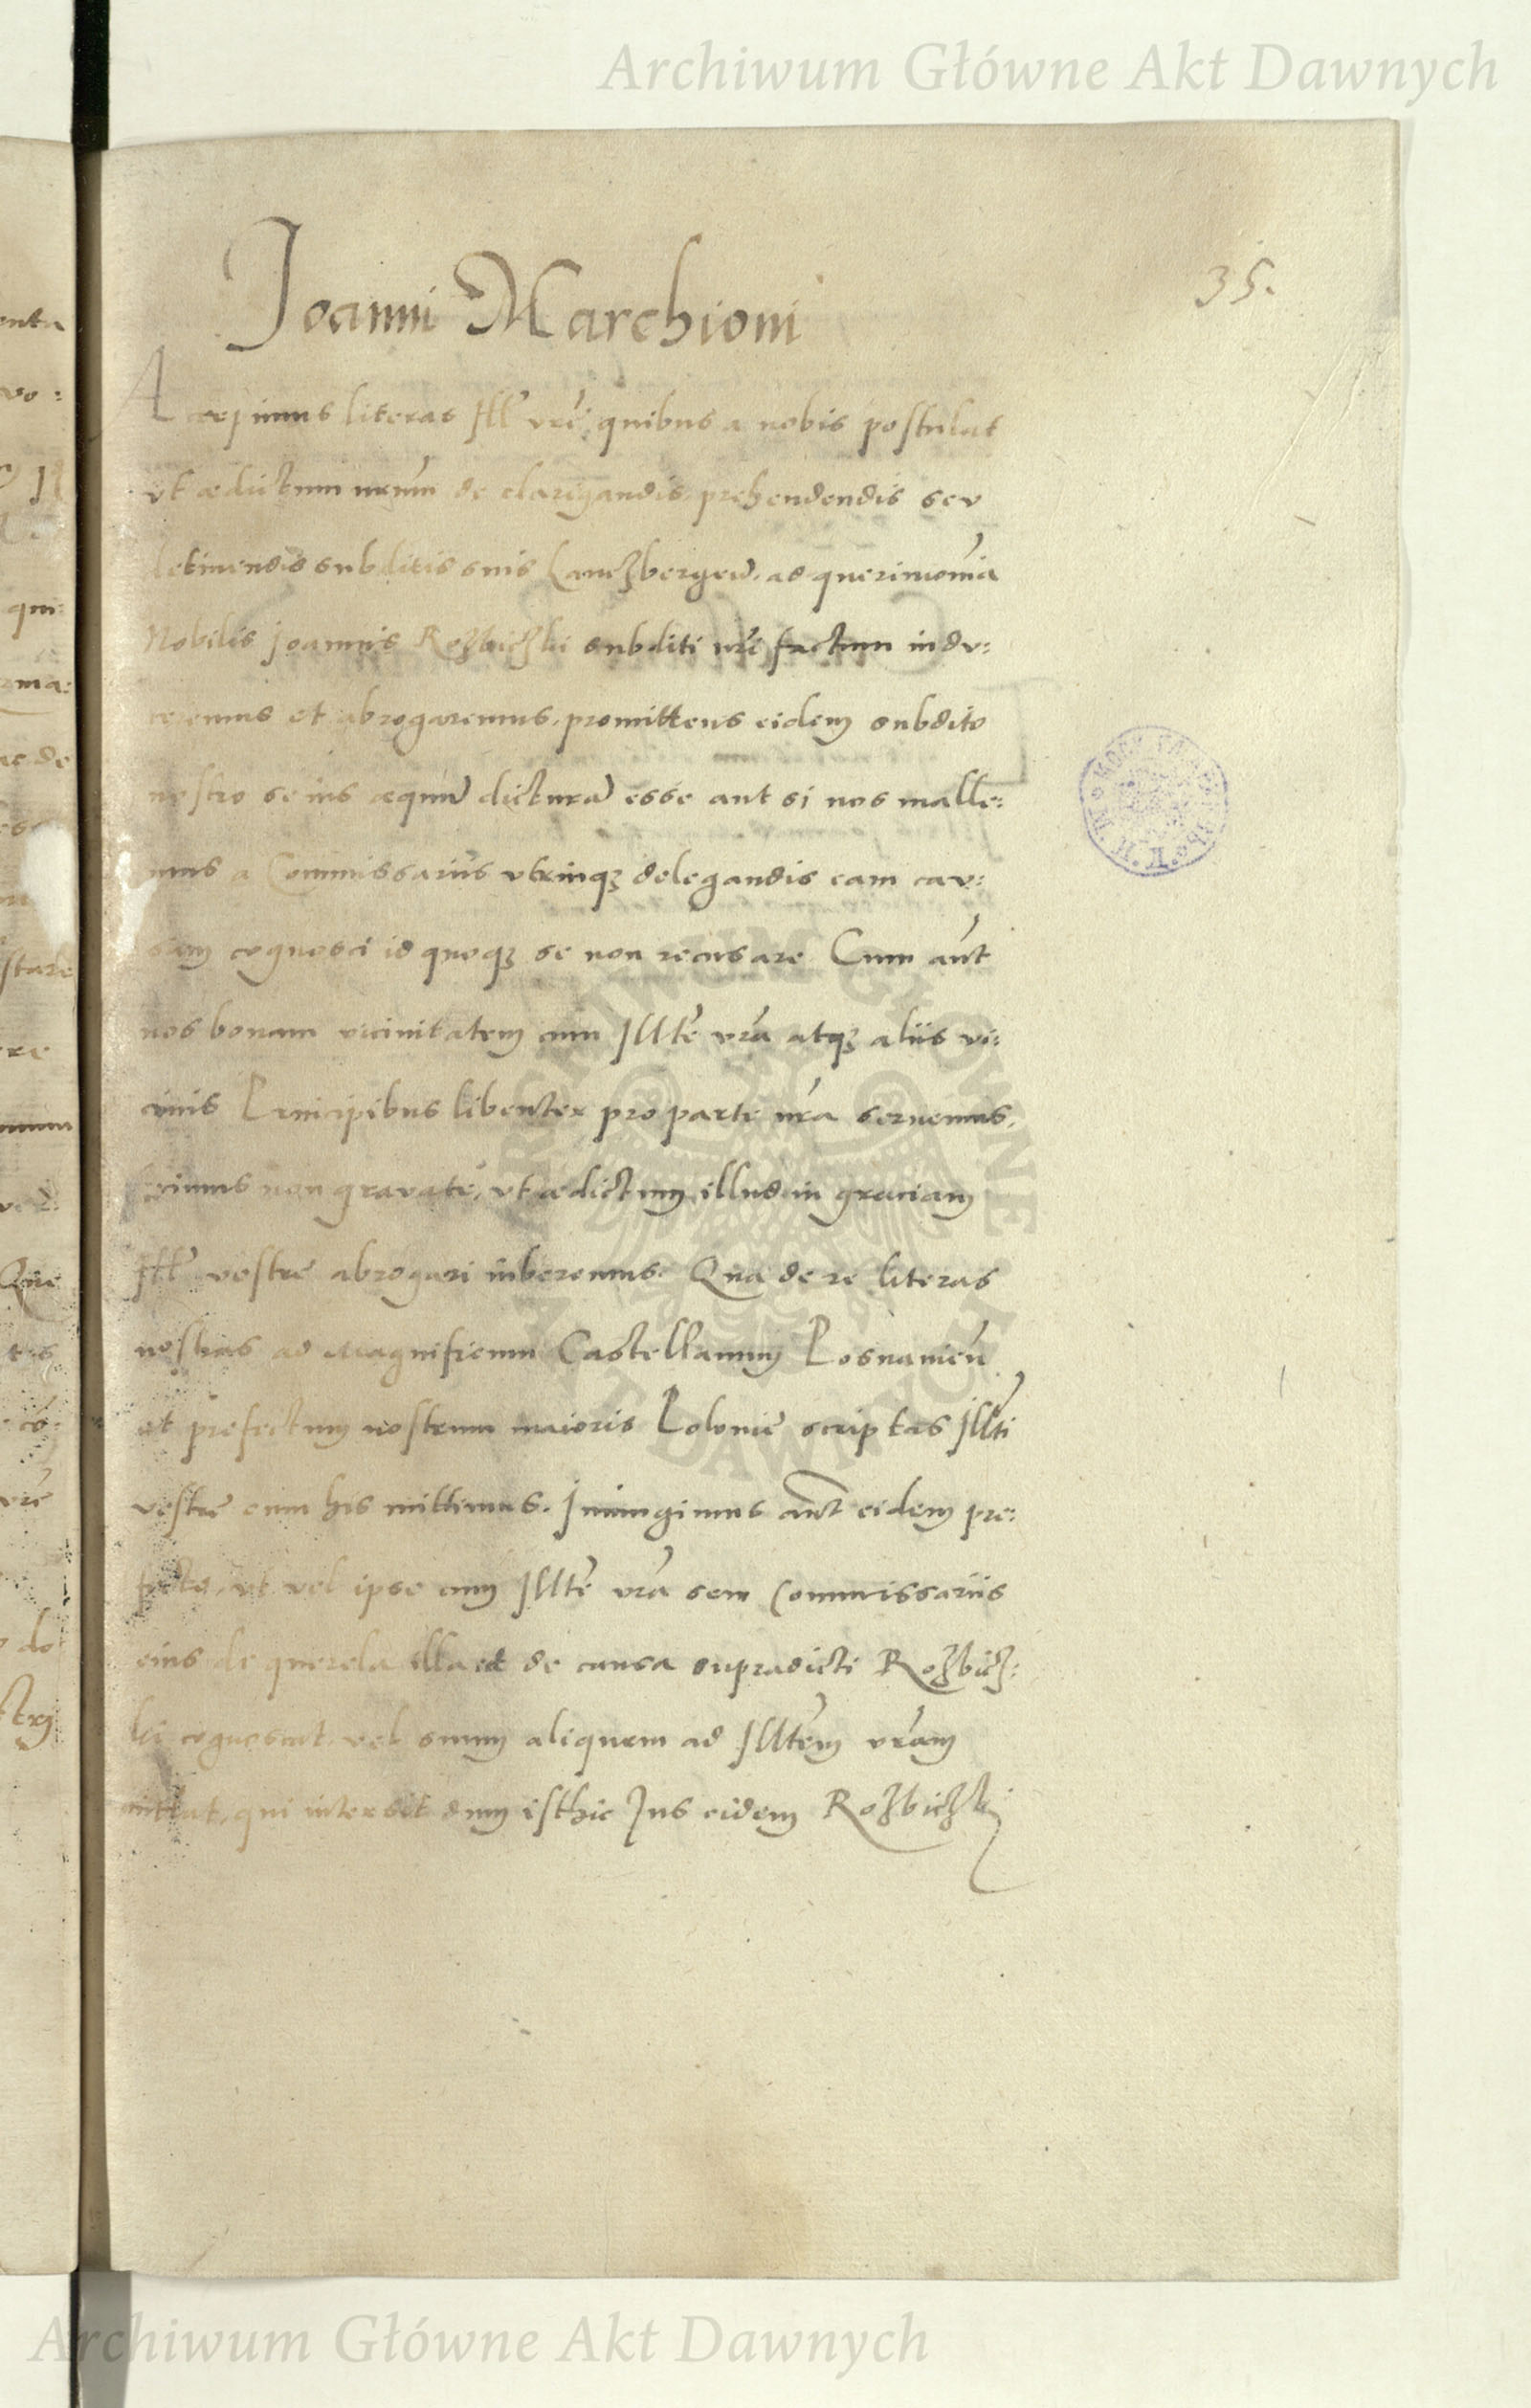 Archiwum Główne Akt Dawnych
35.
Joanni Marchioni
Accepimus literas Ill vrẽ, quibus a nobis postulat
vt ædictum nrum̃ de clarigandis, prehendendis seu
detinendis subditis suis Lanczbergeñ. ad querimonia᷉
Nobilis Joannis Rozbiczki subditi nrĩ factum indu:
ceremus et abrogaremus, promittens eidem subdito
nostro se ius æquũ dicturã esse aut si nos malle:
mus a Commissariis vtrinqꝫ delegandis eam cau:
sam cognosci id quoqꝫ se non recusare Cum aũt
nos bonam vicinitatem cum Illtẽ vrã atqꝫ aliis vi:
cinis Principibus libenter pro parte nrã seruemus,
fecimus non grauate, vt ædictum illud in graciam
Ill vestrę abrogari iuberemus. Qua de re literas
nostras ad Magnificum Castellanum Posnanieñ
et prefectum nostrum maioris Polonię scriptas Illti
vestrę cum his mittimus. Iniungimus aũt eidem pre:
fecto, vt vel ipse cum Illtẽ vrã seu Commissariis
eius de querela illa et de causa supradicti Rozbicz:
ki cognoscat, vel suum aliquem ad Illtẽm vrãm
mittat, qui intersit dum isthic Jus eidem Rozbiczki
ARCHIWUM GŁÓWNE
AKT DAWNYCH
Archiwum Główne Akt Dawnych